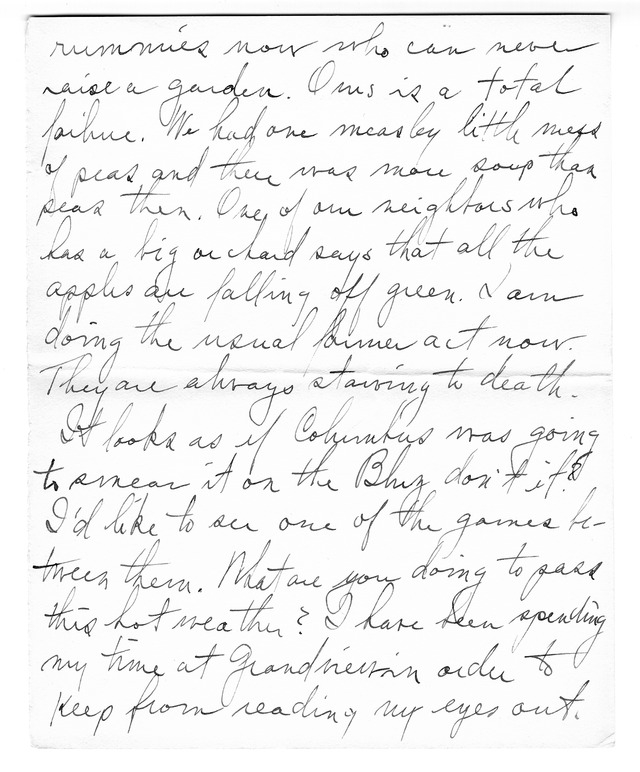 rummies now who can never
raise a garden. Ours is a total
failure. We had one measley little mess
of peas and there was more soup than
peas then. One of our neighbors who
has a big orchard says that all the
apples are falling off green. I am
doing the usual farmer act now.
They are always starving to death.
It looks as if Columbus was going
to smear it on the Bluz don't it?
I'd like to see one of the games be-
tween them. What are you doing to pass
this hot weather? I have been spending
my time at Grandview in order to
keep from reading my eyes out.